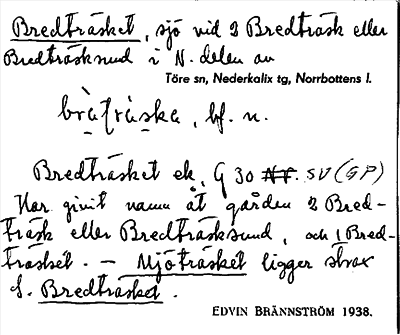 Bredträsket, sjö vid 2 Bredträsk eller
Bredträsksund i N. delen av
Töre sn, Nederkalix tg, Norrbottens l.
bf. n.
Bredträsket ek. G 30 SV (GP)
Har givit namn åt gården 2 Bred-
träsk eller Bredträsksund, och 1 Bred-
träsket. – Mjöträsket ligger strax
S. Bredträsket.
EDVIN BRÄNNSTRÖM 1938.